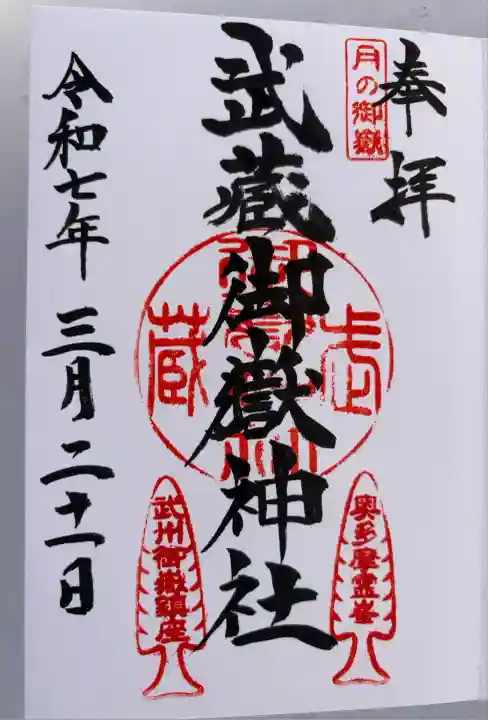 奉拝
月の御嶽
武蔵御嶽神社
武
蔵
奥多摩霊峯
武州御嶽鎮座
令和七年 三月二十一日